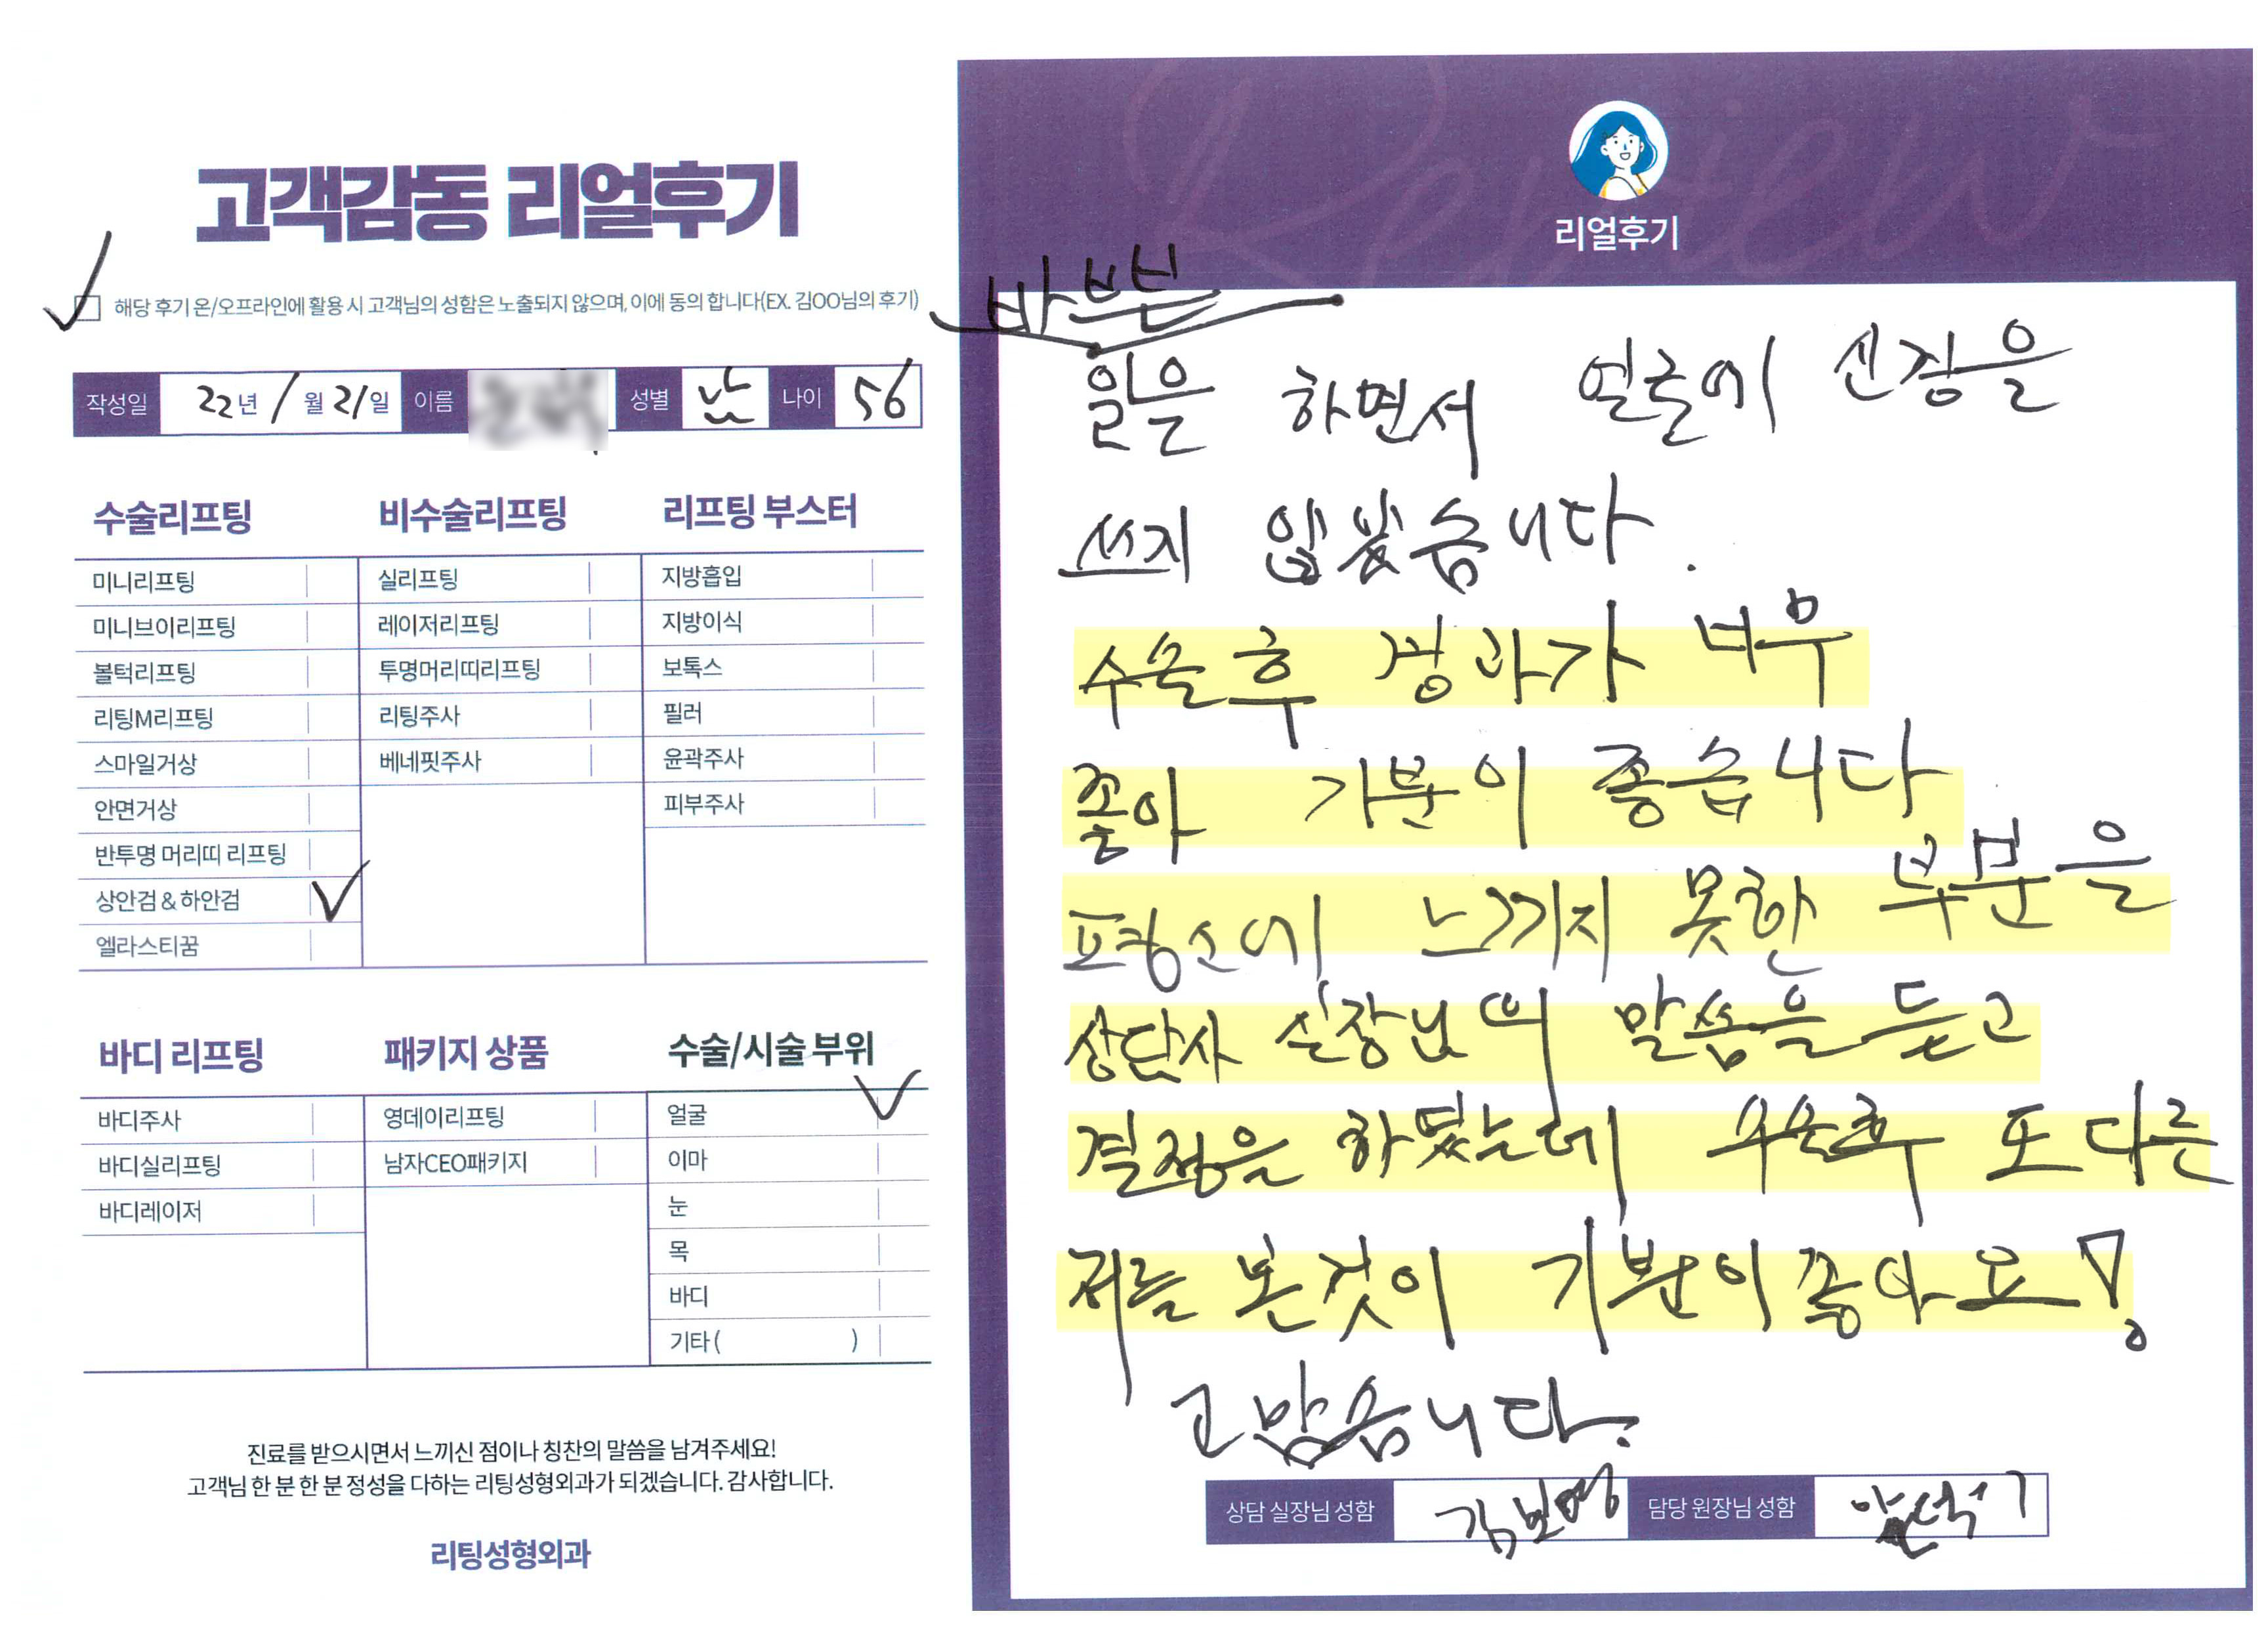 고객감동 리얼후기
해당 후기 온/오프라인에 활용 시 고객님의 성함은 노출되지 않으며, 이에 동의 합니다(EX. 김OO님의 후기)
작성일 22년 1월 21일 이름 성별 남 나이 56
수술리프팅 비수술리프팅 리프팅 부스터
미니리프팅 실리프팅 지방흡입
미니브이리프팅 레이저리프팅 지방이식
볼턱리프팅 투명머리띠리프팅 보톡스
리팅M리프팅 리팅주사 필러
스마일거상 베네핏주사 윤곽주사
안면거상 피부주사
반투명 머리띠 리프팅
상안검 & 하안검
엘라스티꿈
바디 리프팅 패키지 상품 수술/시술 부위
바디주사 영데이리프팅 얼굴
바디실리프팅 남자CEO패키지 이마
바디레이저 눈
목
바디
기타 ( )
진료를 받으시면서 느끼신 점이나 칭찬의 말씀을 남겨주세요!
고객님 한 분 한 분 정성을 다하는 리팅성형외과가 되겠습니다. 감사합니다.
리팅성형외과
Review
리얼후기
바쁜
일을 하면서 얼굴에 신경을
쓰지 않았습니다.
수술후 경과가 너무
좋아 기분이 좋습니다
평소에 느끼지 못한 부분을
상담사 실장님의 말씀을 듣고
결정을 하였는데 수술후 또 다른
저를 본것이 기분이 좋아요!
고맙습니다.
상담 실장님 성함 김보영 담당 원장님 성함